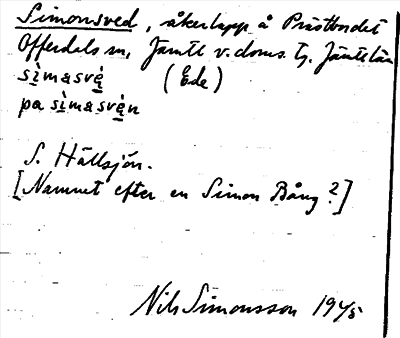 Simonsved, åkerlapp å Prästbordet
Offerdals sn, Jämtl v. doms. tg. Jämtl län
sìmasvę̀ (Ede)
pa sìmasvę̀n
S. Hällsjön.
[Namnet efter en Simon Bång?]
Nils Simonsson 1945